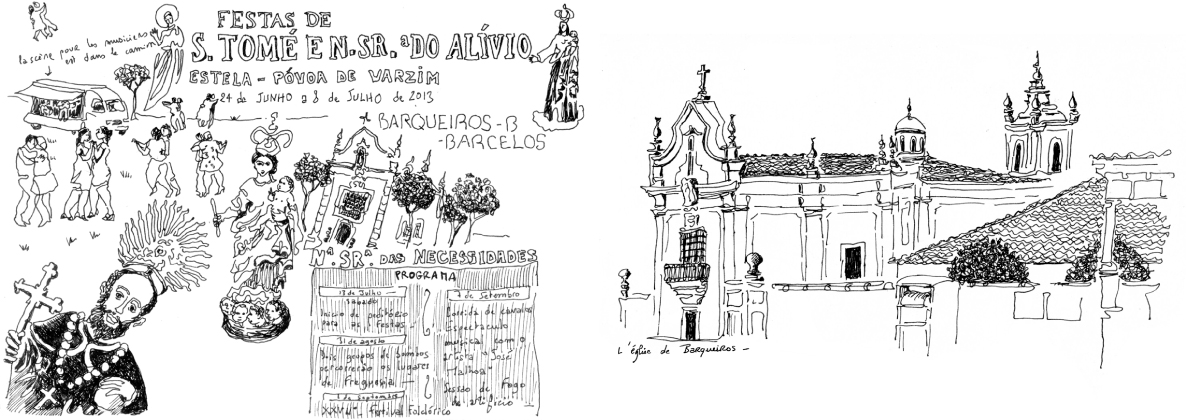 FESTAS DE
S. TOMÉ E N. SR.ª DO ALÍVIO
ESTELA - PÓVOA DE VARZIM
24 de JUNHO a 8 de JULHO de 2013
la scène pour les musiciens
est dans le camion
BARQUEIROS -
- BARCELOS
Nª. SRª. DAS NECESSIDADES
PROGRAMA
13 de Julho
Sábado
Início do peditório
para as Festas -
31 de agosto
Dois grupos de bombos
percorrerão os lugares
da Freguesia -
1 de Septembro
Festival Folclórico
7 de Setembro
Corrida de cavalos
espectaculo
musical com o
artista "José
Malhoa"
Sessão de Fogo
de artifício
L'église de Barqueiros -